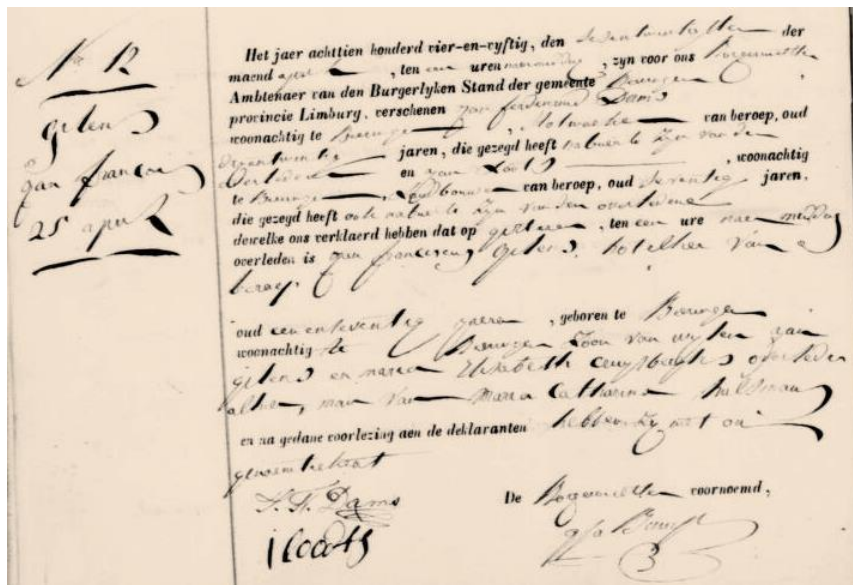 N° 12
gilens
jan francois
25 april
Het jaer achttien honderd vier-en-vyftig, den sesentwintigsten der
maend april, ten een uren namiddag, zyn voor ons Borgemeester
Ambtenaer van den Burgerlyken Stand der gemeente Beeringen
provincie Limburg, verschenen jan ferdinand Dams
woonachtig te Beeringen, van beroep, oud
jaren, die gezegd heeft nabuer te zyn van den
overleden en jan Loots, woonachtig
te Beeringen, Landbouwer van beroep, oud seventig jaren,
die gezegd heeft ook nabuer te zyn van den overledene
dewelke ons verklaerd hebben dat op gisteren, ten een ure naer middag
overleden is jan franciscus gilens, hotelher van
beroep
oud eenentseventig jaeren, geboren te Beeringen
woonachtig te Beeringen Zoon van wylen jan
gilens en maria Elisabeth overleden
alhier, man van Maria Catharina hulsmans
en na gedane voorlezing aen de deklaranten hebben zy met ons
geteekend
J. F. Dams
j loots
De Borgemeester voornoemd,